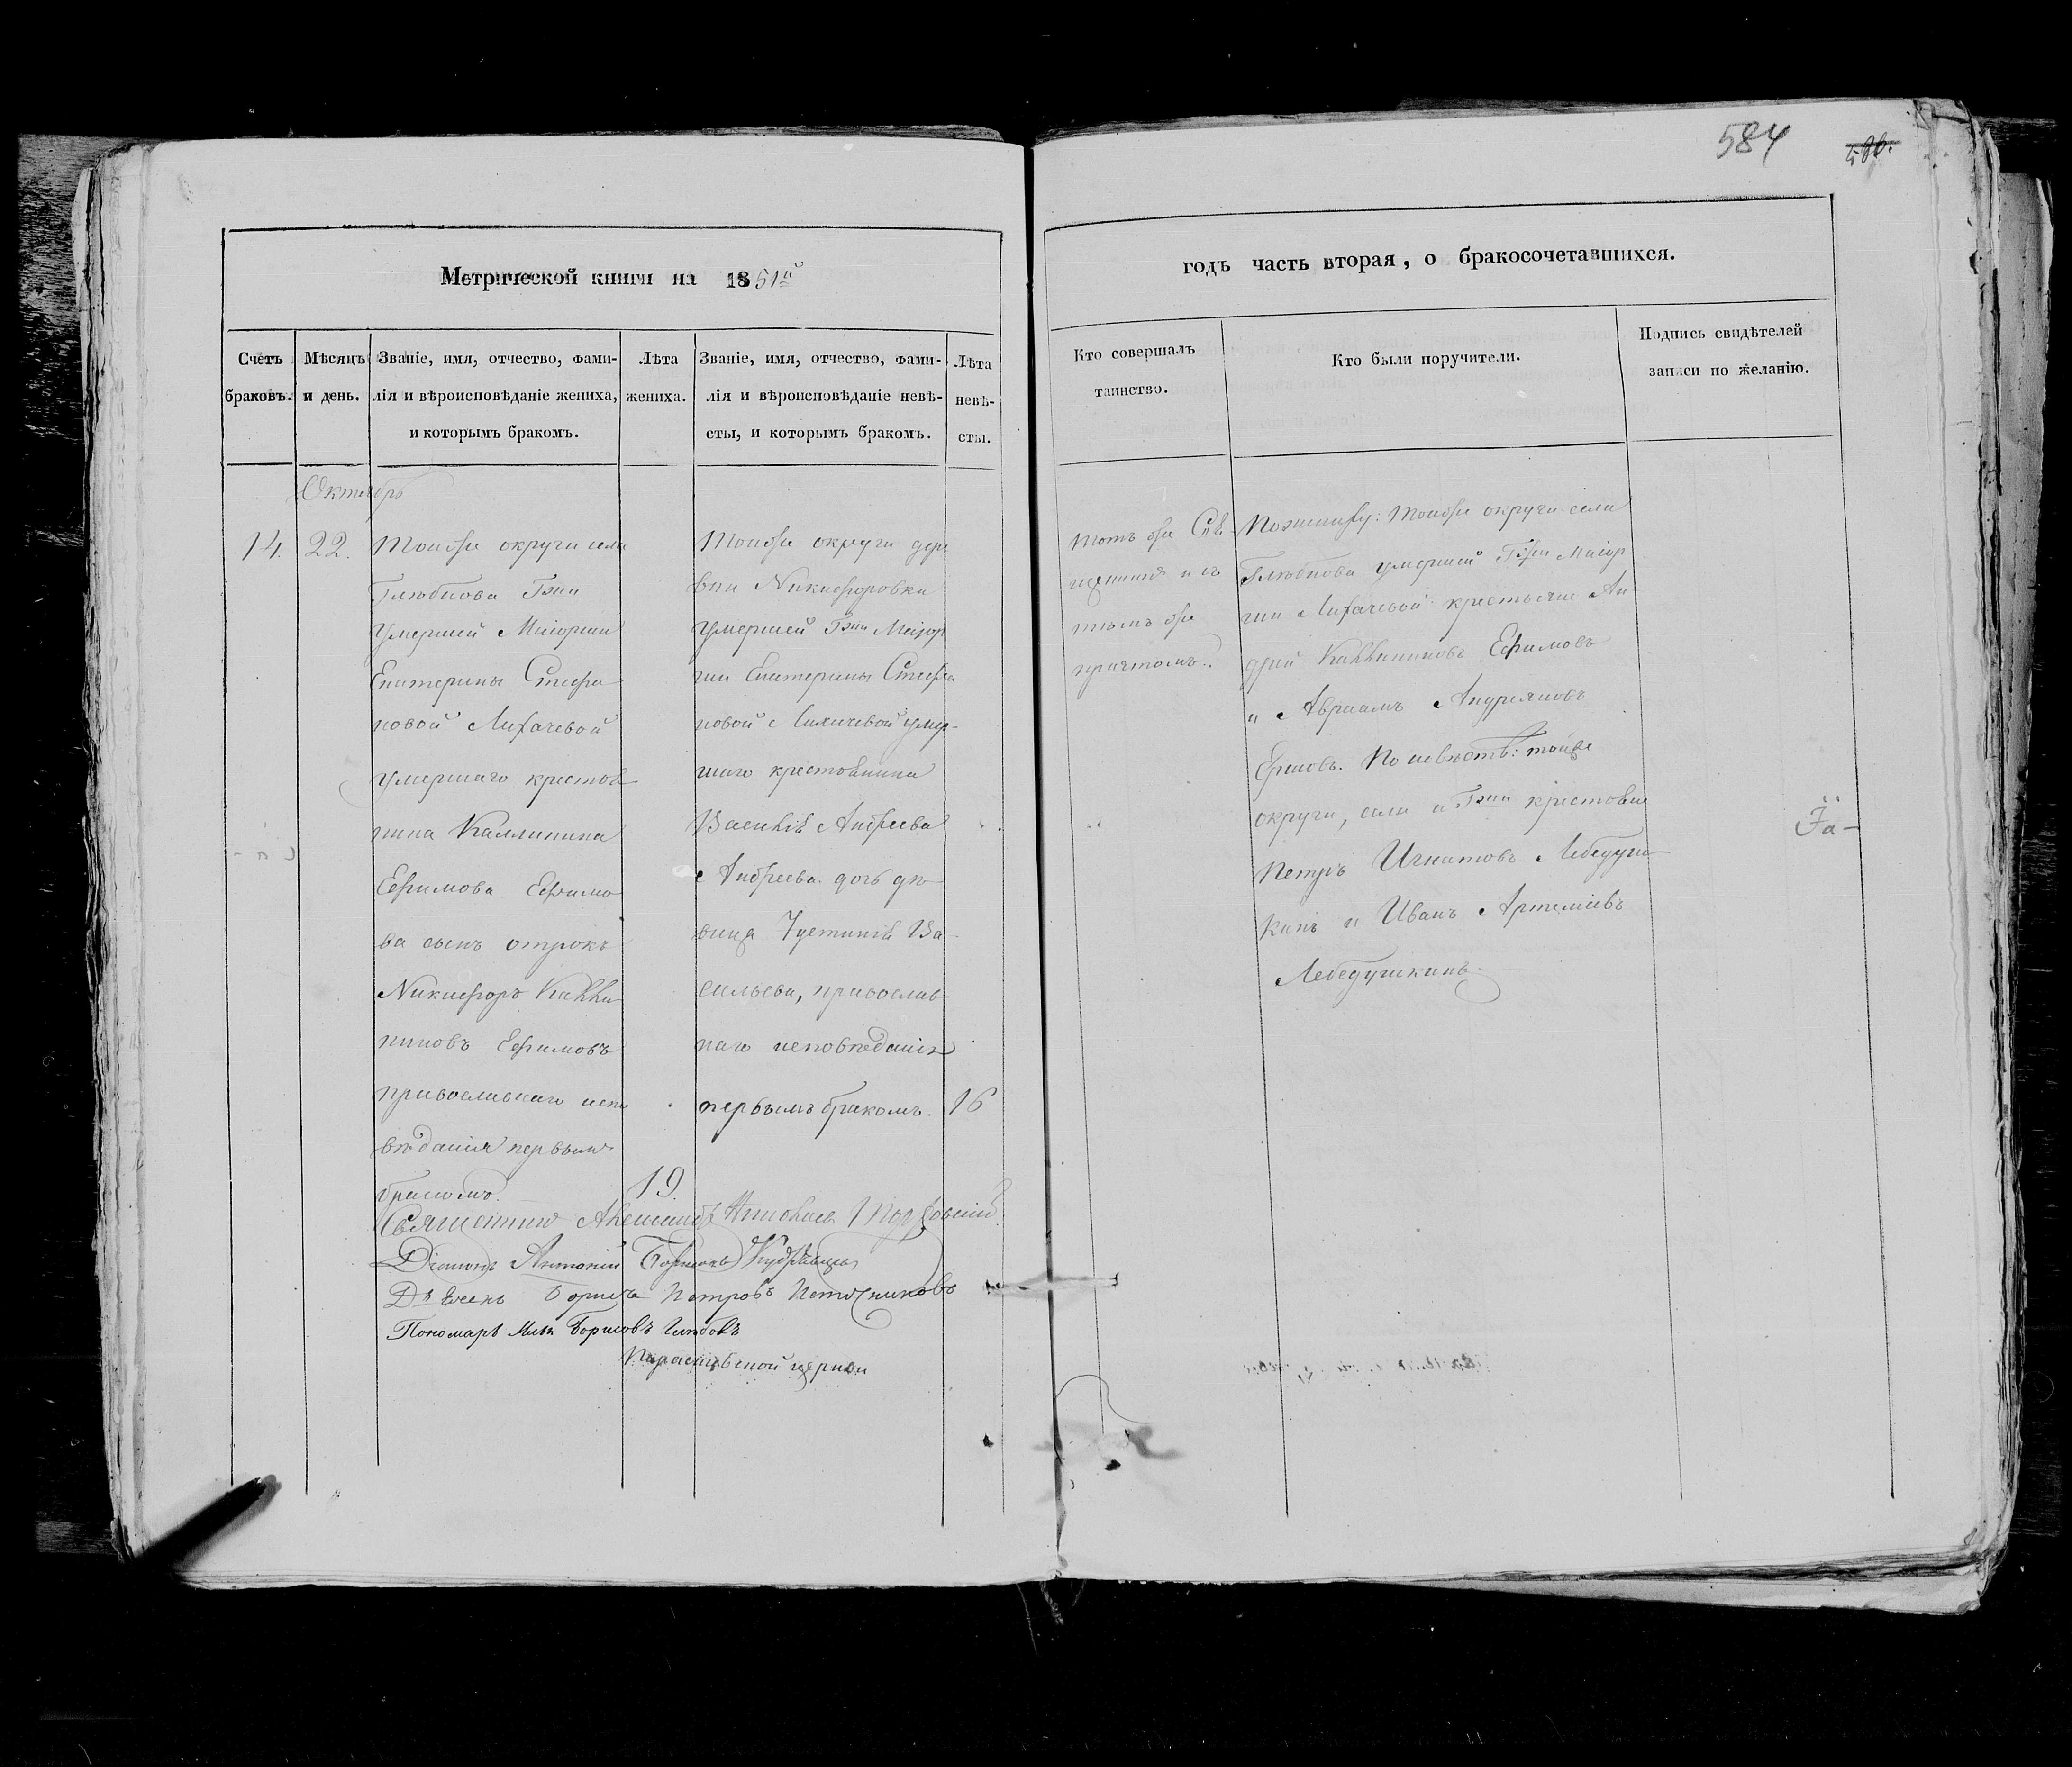 584
Метрической книги на 1851й
годъ часть вторая, о бракосочетавшихся.
Счетъ браковъ.
Мѣсяцъ и день.
Званіе, имя, отчество, фами-
лія и вѣроисповѣданіе жениха,
и которымъ бракомъ.
Лѣта
жениха.
Званіе, имя, отчество, фами-
лія и вѣроисповѣданіе невѣ-
сты, и которымъ бракомъ.
Лѣта
невѣ-
сты.
Кто совершалъ
таинство.
Кто были поручители.
Подпись свидѣтелей
записи по желанію.
Октябрь
14. 22.
Тойже округи села
Глюбнова Гжи
умершей Маіорши
Екатерины Стефа
новой Лихачевой
умершаго крестья
нина Каллинина
Ефимова Ефимо
ва сынъ отрокъ
Никифоръ Калли
ниновъ Ефимовъ
православнаго испо
вѣданія первымъ
бракомъ.
19.
Тойже округи дере
вни Никифоровки
умершей Гжи Маіор
ши Екатерины Стефа
новой Лихачевой умер-
шаго крестьянина
Василія Андреева
Андреева дочь дѣ
вица Устинія Ва-
сильева, православ
наго исповѣданія
первымъ бракомъ.
16
Тотъ же Свя-
щенникъ и съ
тѣмъ же
причтомъ.
По жениху: тойже округи села
Глюбнова умершей Гжи Маіор
ши Лихачевой крестьяне Ан
дрей Каллининовъ Ефимовъ
и Авраамъ Андреяновъ
По невѣстѣ: тойже
округи, села и Гжи крестьяне
Петръ Игнатовъ Лебедуш-
кинъ и Иванъ Артеміевъ
Лебедушкинъ
Священникъ Николаевъ
Діаконъ Антоній Борисовъ
Дьячекъ Борисъ Петровъ
Пономарь Борисовъ
церкви